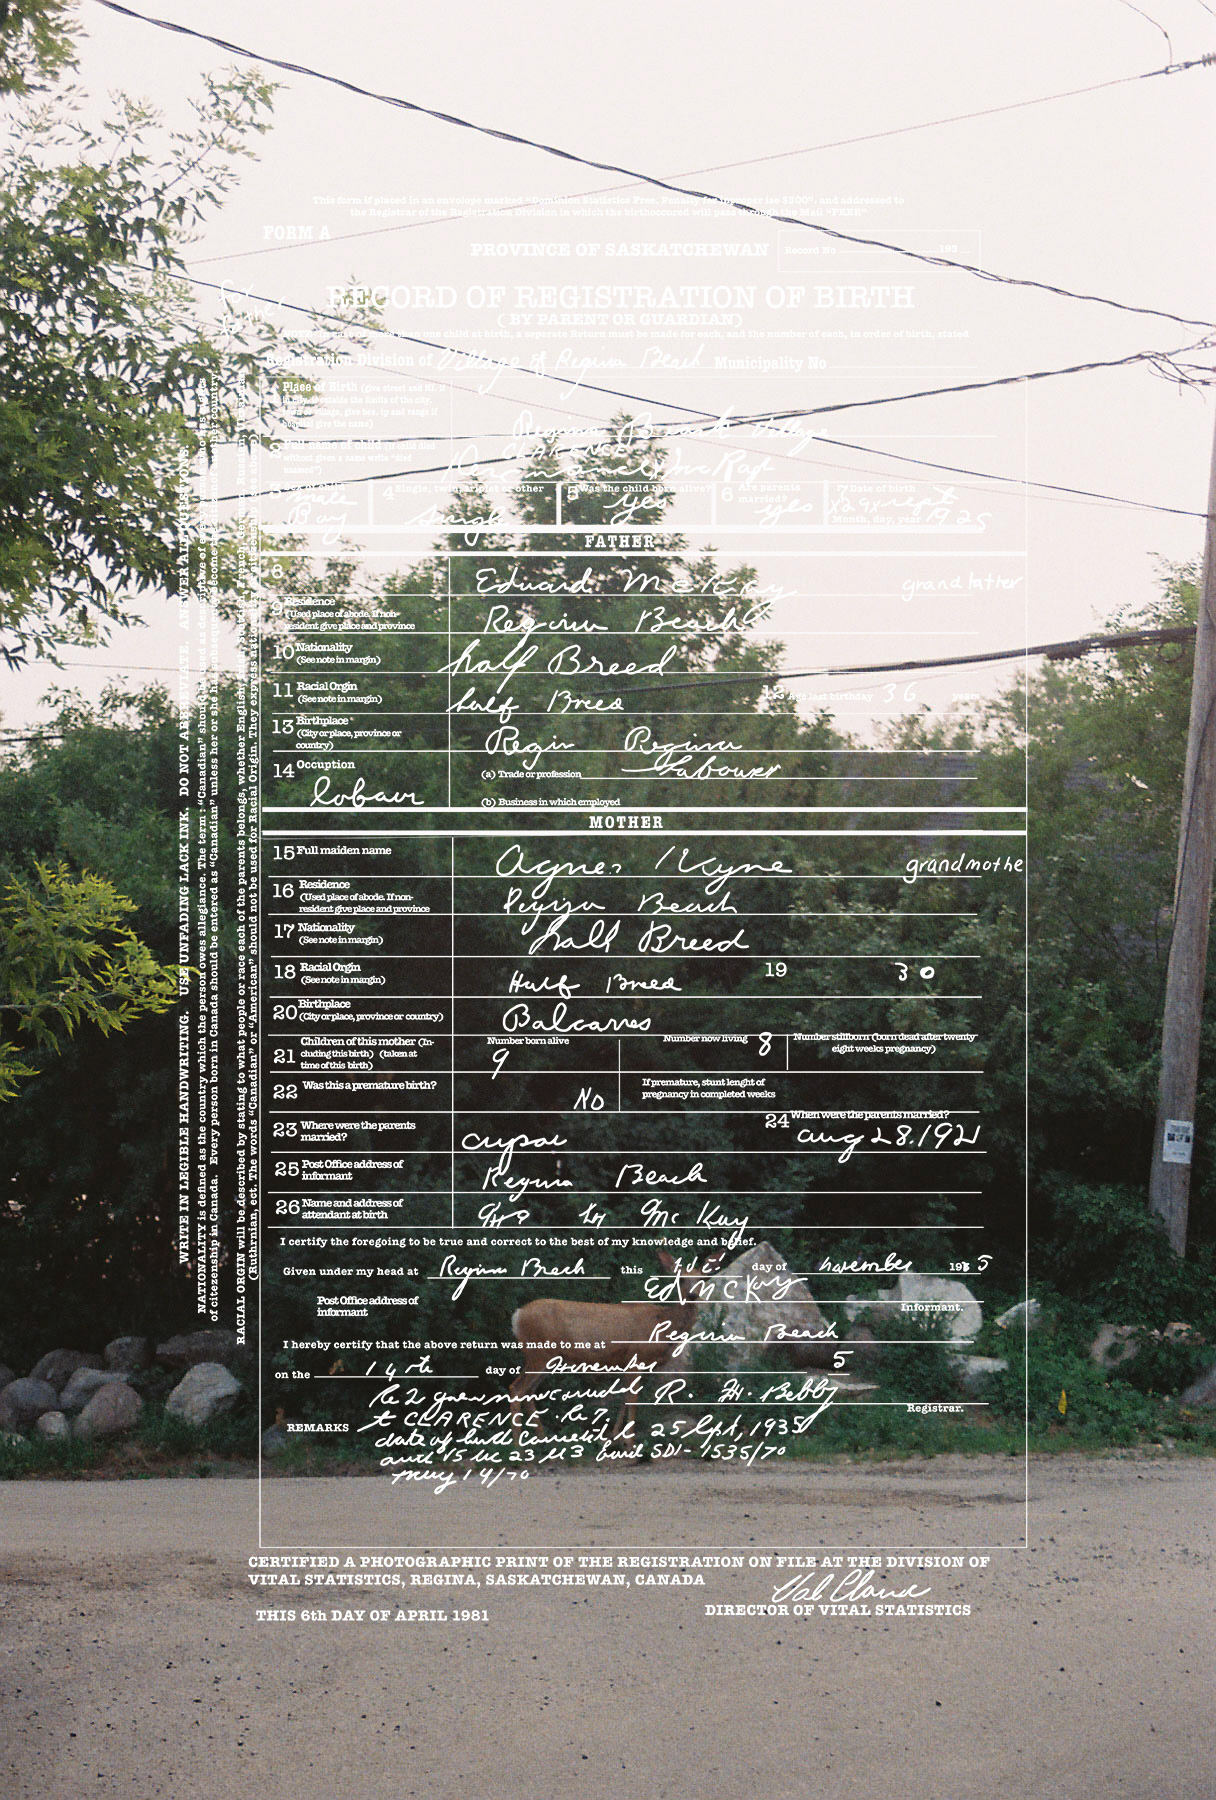 This form if placed in an envelope marked "Dominion Statistics Free. Penalty for improper use $300", and addressed to
the Registrar of the Registration Division in which the birthoccured will pass through the Mail "FREE"
FORM A
PROVINCE OF SASKATCHEWAN
Record No 193
for
father
RECORD OF REGISTRATION OF BIRTH
( BY PARENT OR GUARDIAN)
more than one child at birth, a seperate Return must be made for each, and the number of each, in order of birth, stated
Registration Division of Village of Regina Beach Municipality No
Place of Birth (give street and
outside the limits of the city,
village, give sec. tp and range if
hospital give the name)
Regina Beach Village
2 Full name of child
without given a name write "died
unnamed")
CLARENCE
3
male
Boy
4 Single, twin, triplet or other
single
5 Was the child born alive?
yes
6 Are parents
married?
yes
7 Date of birth
Sept
1925
Month, day, year
FATHER
8 Eduard McKay grandfather
9 Residence
(Used place of abode. If non-
resident give place and province
Regina Beach
10 Nationality
(See note in margin)
half Breed
11 Racial Orgin
(See note in margin)
half Breed
12 Age last birthday 36 years
13 Birthplace
(City or place, province or
country)
Regin Regina
14 Occuption
lobaur
(a) Trade or profession Labourer
(b) Business in which employed
MOTHER
15 Full maiden name
Agnes Kyne grandmothe
16 Residence
(Used place of abode. If non-
resident give place and province
Regina Beach
17 Nationality
(See note in margin)
half Breed
18 Racial Orgin
(See note in margin)
Half Breed
19 30
20 Birthplace
(City or place, province or country)
Balcarres
21 Children of this mother (In-
cluding this birth) (taken at
time of this birth)
Number born alive
9
Number now living 8
Number stillborn (born dead after twenty
eight weeks pregnancy)
22 Was this a premature birth?
No
If premature, stunt lenght of
pregnancy in completed weeks
23 Where were the parents
married?
24 When were the parents married?
aug 28.1921
25 Post Office address of
informant
Regina Beach
26 Name and address of
attendant at birth
Mc Kay
I certify the foregoing to be true and correct to the best of my knowledge and belief.
Given under my head at Regina Beach this day of november 193 5
Ed McKay
Post Office address of
informant
Informant.
I hereby certify that the above return was made to me at Regina Beach
on the 14th day of November 5
R. H. Bebby
Registrar.
REMARKS
Re 2 given name
to CLARENCE. Re 7.
date of birth 25 Sept, 1935
1535/70
May 14/70
WRITE IN LEGIBLE HANDWRITING. USE UNFADING LACK INK. DO NOT ABREVIATE. ANSWER ALL QUESTIONS.
NATIONALITY is defined as the country which the person owes allegiance. The term: "Canadian" should be used as descriptive of every person who has rights
of citezenship in Canada. Every person born in Canada should be entered as "Canadian" unless her or she has subsequently become the citizen of another country.
RACIAL ORGIN will be described by stating to what people or race each of the parents belongs, whether English, Irish, Scottish, French, German, Russian,
(Ruthrnian, ect. The words "Canadian" or "American" should not be used for Racial Origin. They express
CERTIFIED A PHOTOGRAPHIC PRINT OF THE REGISTRATION ON FILE AT THE DIVISION OF
VITAL STATISTICS, REGINA, SASKATCHEWAN, CANADA
THIS 6th DAY OF APRIL 1981
DIRECTOR OF VITAL STATISTICS